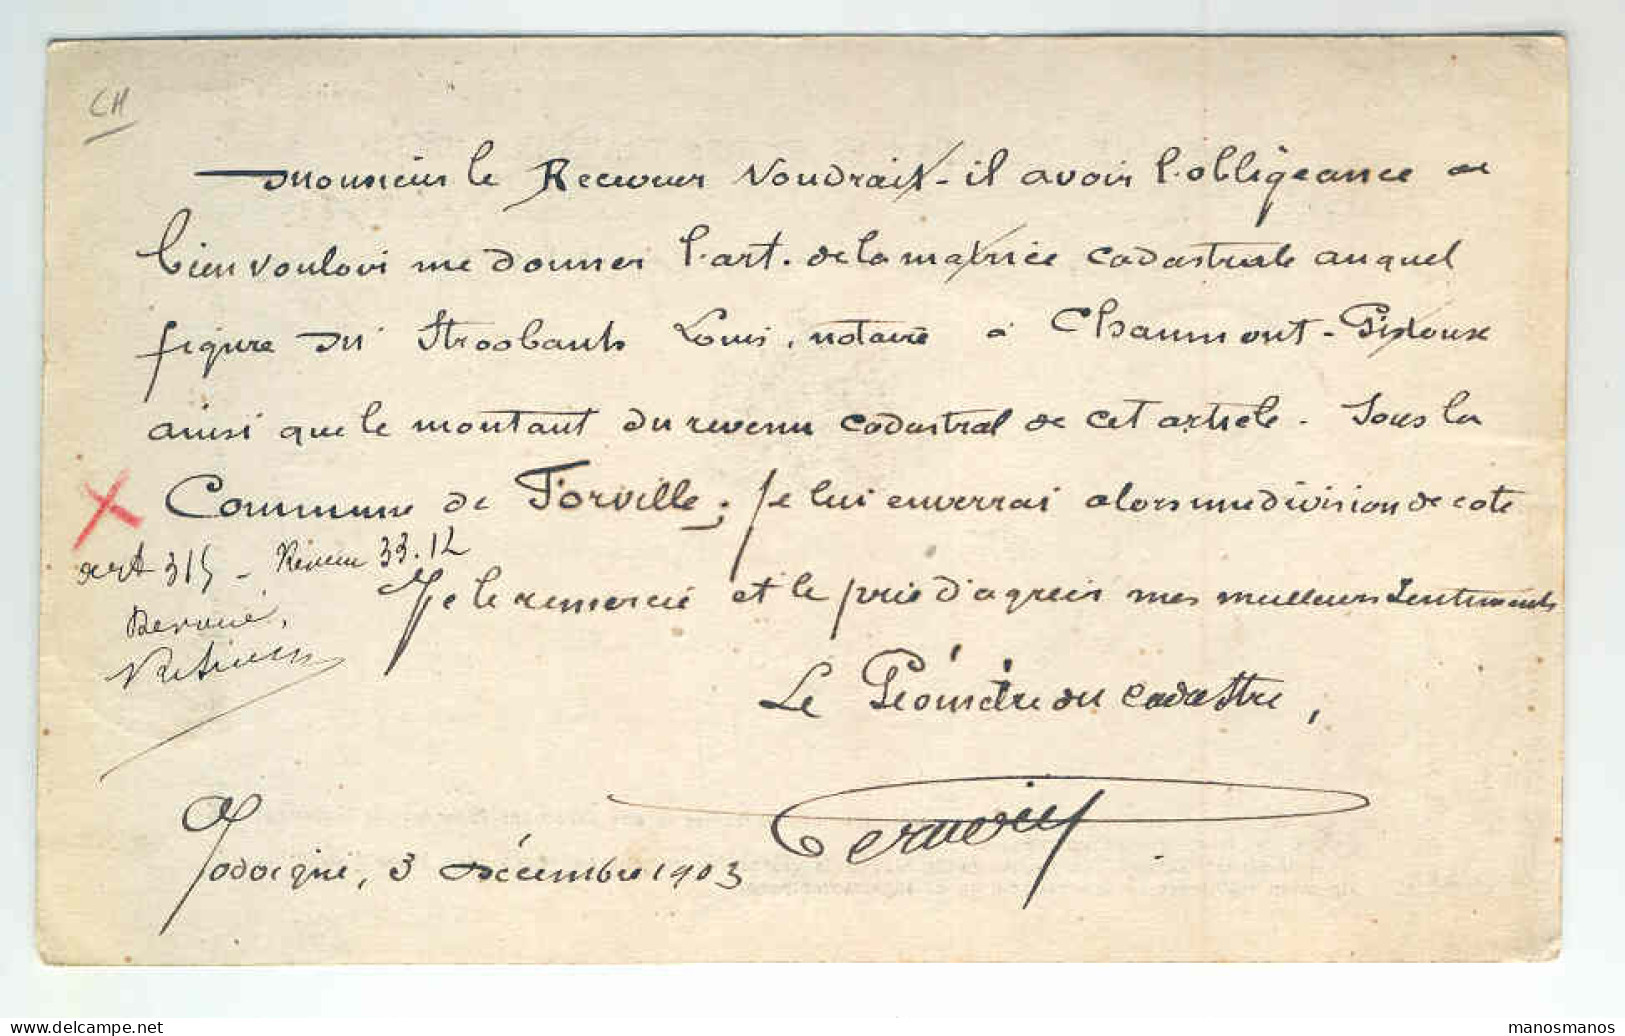 CH
Monsieur le Receveur Voudrait-il avoir l'obligeance de
bien vouloir me donner l'art. de la matrice cadastrale auquel
figure Mr Stroobants Louis, notaire à Chaumont-Gistoux
ainsi que le montant du revenu cadastral de cet article. Sous la
Commune de Forville; je lui enverrai alors une division de cote
art 315 - Revenu 33.12
Je le remercie et le prie d'agréer mes meilleurs Sentiments
Le Géomètre du Cadastre,
Jodoigne, 3 Décembre 1903
manosmanos
manosmanos